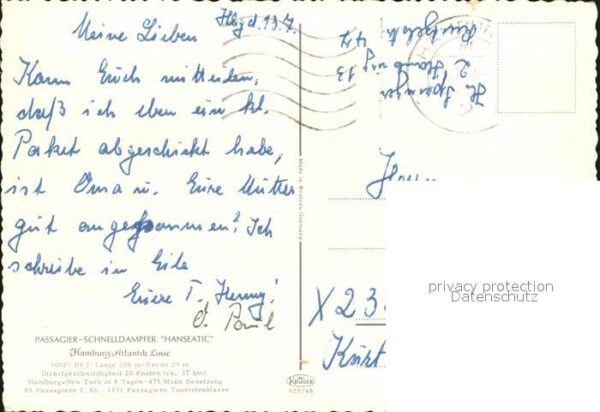 Hbg d. 13.7.
Meine Lieben
Kann Euch mitteilen,
daß ich eben ein kl.
Paket abgeschickt habe,
ist Oma u. Eure Mutter
gut angekommen? Ich
schreibe in Eile
Eure T. Henny!
Paul
PASSAGIER-SCHNELLDAMPFER "HANSEATIC"
Hamburg-Atlantik Linie
30029 BRT - Länge 206 m - Breite 29 m
Dienstgeschwindigkeit 20 Knoten (ca. 37 km)
Hamburg-New York in 8 Tagen - 475 Mann Besatzung
85 Passagiere 1. Kl. - 1191 Passagiere Touristenklasse
Made in Western Germany
KRÜGER
920/48
2 Hamburg 13
47
X 23
privacy protection
Datenschutz